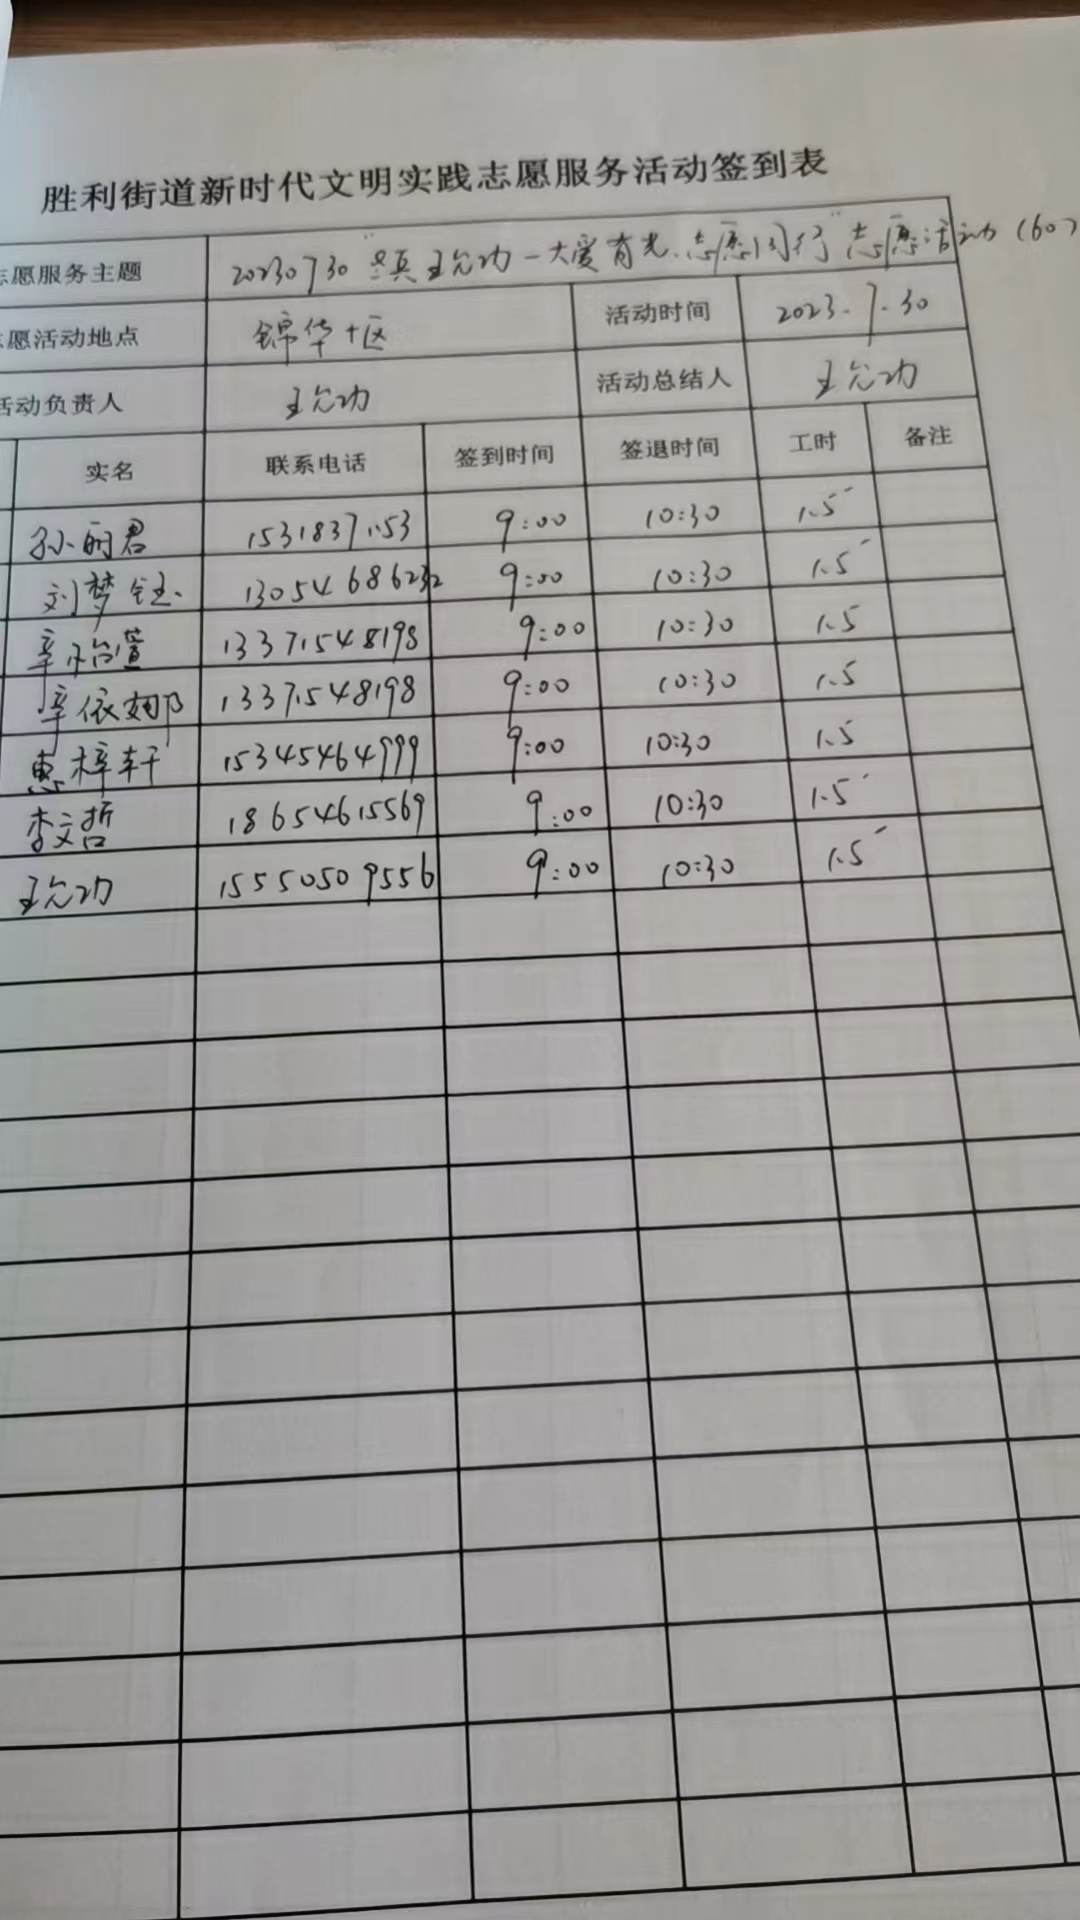 胜利街道新时代文明实践志愿服务活动签到表
志愿服务主题 20230730 王允功一大爱有光.志愿同行"志愿活动(60)
志愿活动地点 锦华十区 活动时间 2023.7.30
活动负责人 王允功 活动总结人 王允功
实名 联系电话 签到时间 签退时间 工时 备注
孙丽君 9:00 10:30 1.5
刘梦钰 13054686232 9:00 10:30 1.5
辛 萱 13371548198 9:00 10:30 1.5
辛依娜 13371548198 9:00 10:30 1.5
惠梓轩 15345464999 9:00 10:30 1.5
李文哲 18654615569 9:00 10:30 1.5
王允功 15550509556 9:00 10:30 1.5